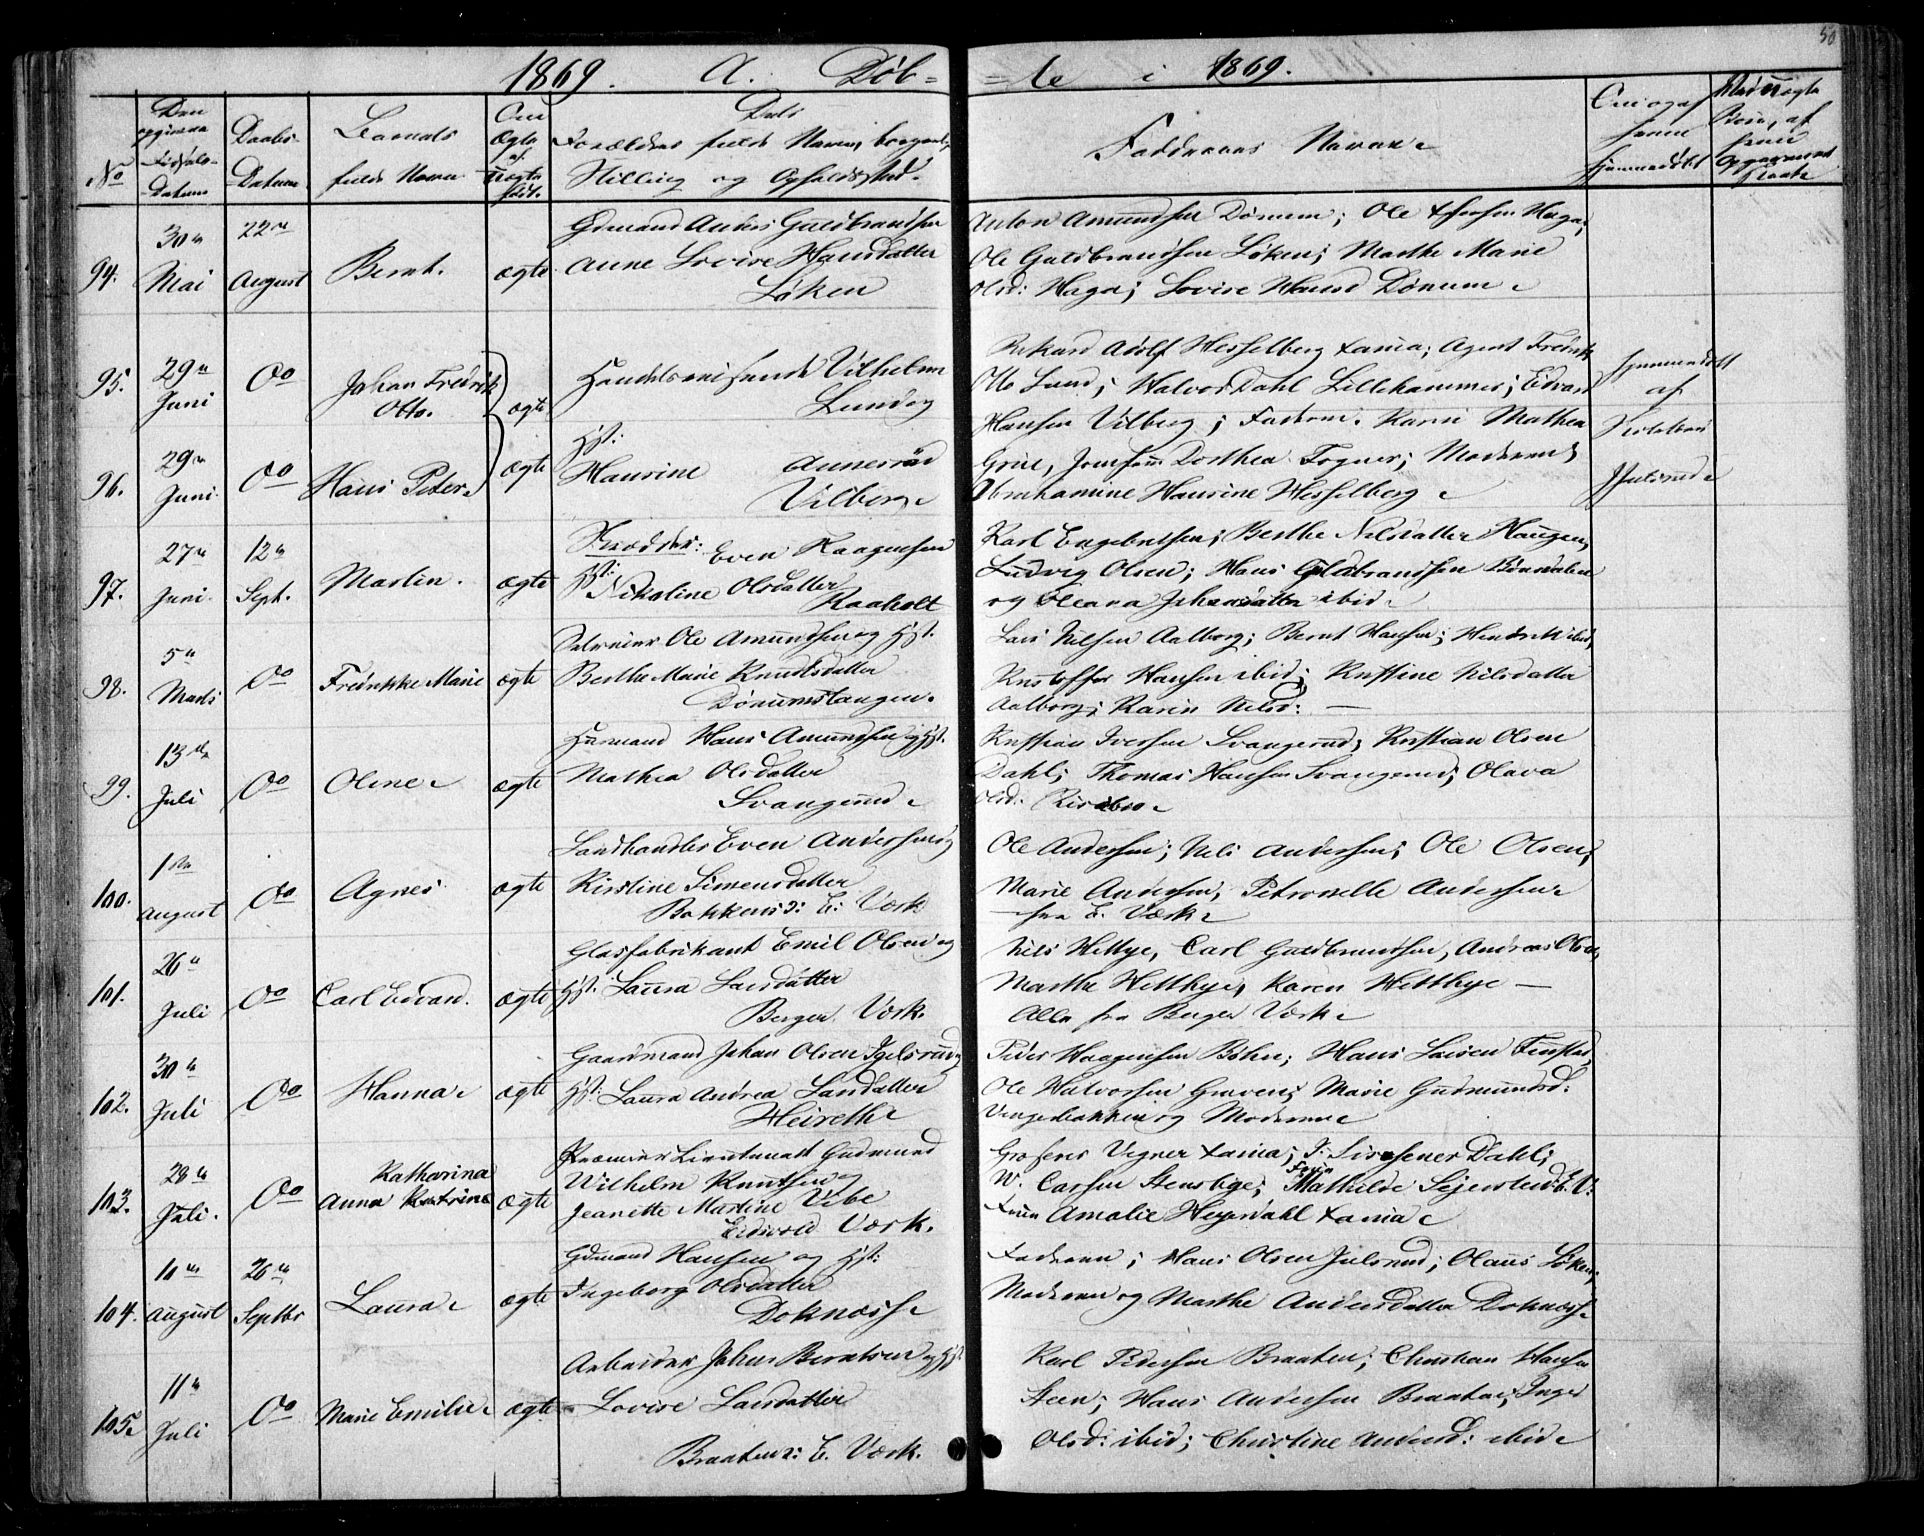 50
1869. A. Døb= =te i 1869.
No
Den opgivne Fødsels-Datum
Daabs-Datum
Barnets fulde Navn
Om ægte el. uægte født.
Dets Forældres fulde Navn, borgerlig Stilling og Opholdssted.
Faddernes Navne
Om og af hvem hjemmedøbt
94.
30te Mai
22de August
Bernt.
ægte
Gdmand Anders Guldbrandsen
Anne Lovise Hansdatter
Løken
Anton Amundsen Dønnum; Ole Haga;
Ole Guldbrandsen Løken; Marthe Marie
Olsd: Haga; Lovise Hansd Dønnum
95.
29de Juni
Do
Johan Fredrik
Otto.
ægte
Handelsreisende Vilhelm
Lund og
Rikard Adolf Hesselberg Xania; Agent Fredrik
Otto Lund; Halvor Dahl Lillehammer; Edvard
Hjemmedøbt
af
96.
29de Juni
Do
Hans Peter
ægte
Hst:
Haurine Annersrød
Vilberg
Hansen Vilberg; Faderen; Karen Mathea
Grue, Dorthea Fogner; Moderen;
Abrahamine Haurine Hesselberg
Julsrud
97.
27de Juni
12te Sept.
Martin.
ægte
Skrædder: Even Haagensen
Hst: Nikoline Olsdatter
Raaholt
Karl Engebretsen; Berthe Nilsdatter Haugen;
Ludvig Olsen; Hans Guldbrandsen
og Oleana Johansdatter ibid
98.
5te Marts
Do
Fredrikke Marie
ægte
Ole Amundsen og Hst.
Berthe Marie Knudsdatter
Dønnumstangen.
Lars Nilsen Aalborg; Bernt Hansen; Hendrik ibid;
Kristoffer Hansen ibid; Kristine Nilsdatter
Aalborg; Karen Nilsd: —
99.
13de Juli
Do
Oline
ægte
Husmand Hans Amundsen og Hst.
Mathea Olsdatter
Svangerud
Kristian Iversen Svangerud; Kristian Olsen
Dahl; Thomas Hansen Svangerud; Olava
Olsd: Risebro
100.
1ste August
Do
Agnes
ægte
Landhandler Even Andersen og
Kirstine Simensdatter
Bakken v: E: Værk
Ole Andersen; Nils Andersen; Ole Olsen;
Marie Andersen; Petronelle Andersen
fra E. Værk
101.
26de Juli
Do
Carl Edvard.
ægte
Glasfabrikant Emil Olsen og
Hst: Laura Larsdatter
Berger Værk.
Nils Hettye, Carl Guldbrandsen, Andreas Olsen,
Marthe Hetthye, Karen Hetthye —
Alle fra Berger Værk
102.
30te Juli
Do
Hanna
ægte
Gaardmand Johan Olsen Julsrud og
Hst: Laura Andrea Larsdatter
Heireth
Peder Haagensen Bøhn; Hans Larsen Finstad;
Ole Halvorsen Graven; Marie Gudmundsd:
Vengerbakken og Moderen
103.
28de Juli.
Do
Katharina
Anna Katrine
ægte
Premier Lieutenant Gudmund
Wilhelm Knutsen og
Jeanette Martine Vibe
Eidsvold Værk.
Grosserer Vigner Xania; Dahl;
W. Carsen Stensbye; Frue Mathilde Sejersted E. V:
Frue Amalie Heyerdahl Xania
104.
10de August
26de Septbr
Laura
ægte
Gdmand Hansen og Hst:
Ingeborg Olsdatter
Doknæss
Faderen; Hans Olsen Julsrud; Olaus Løken;
Moderen og Marthe Andersdatter Doknæss
105.
11te Juli
Do
Marie Emilie
ægte
Arbeider Johan Berntsen og Hst
Lovise Larsdatter
Braaten v: E. Værk.
Karl Pedersen Braaten; Christian Hansen
Steen; Hans Andersen Braaten; Inger
Olsd: ibid; Christine Andersd: ibid